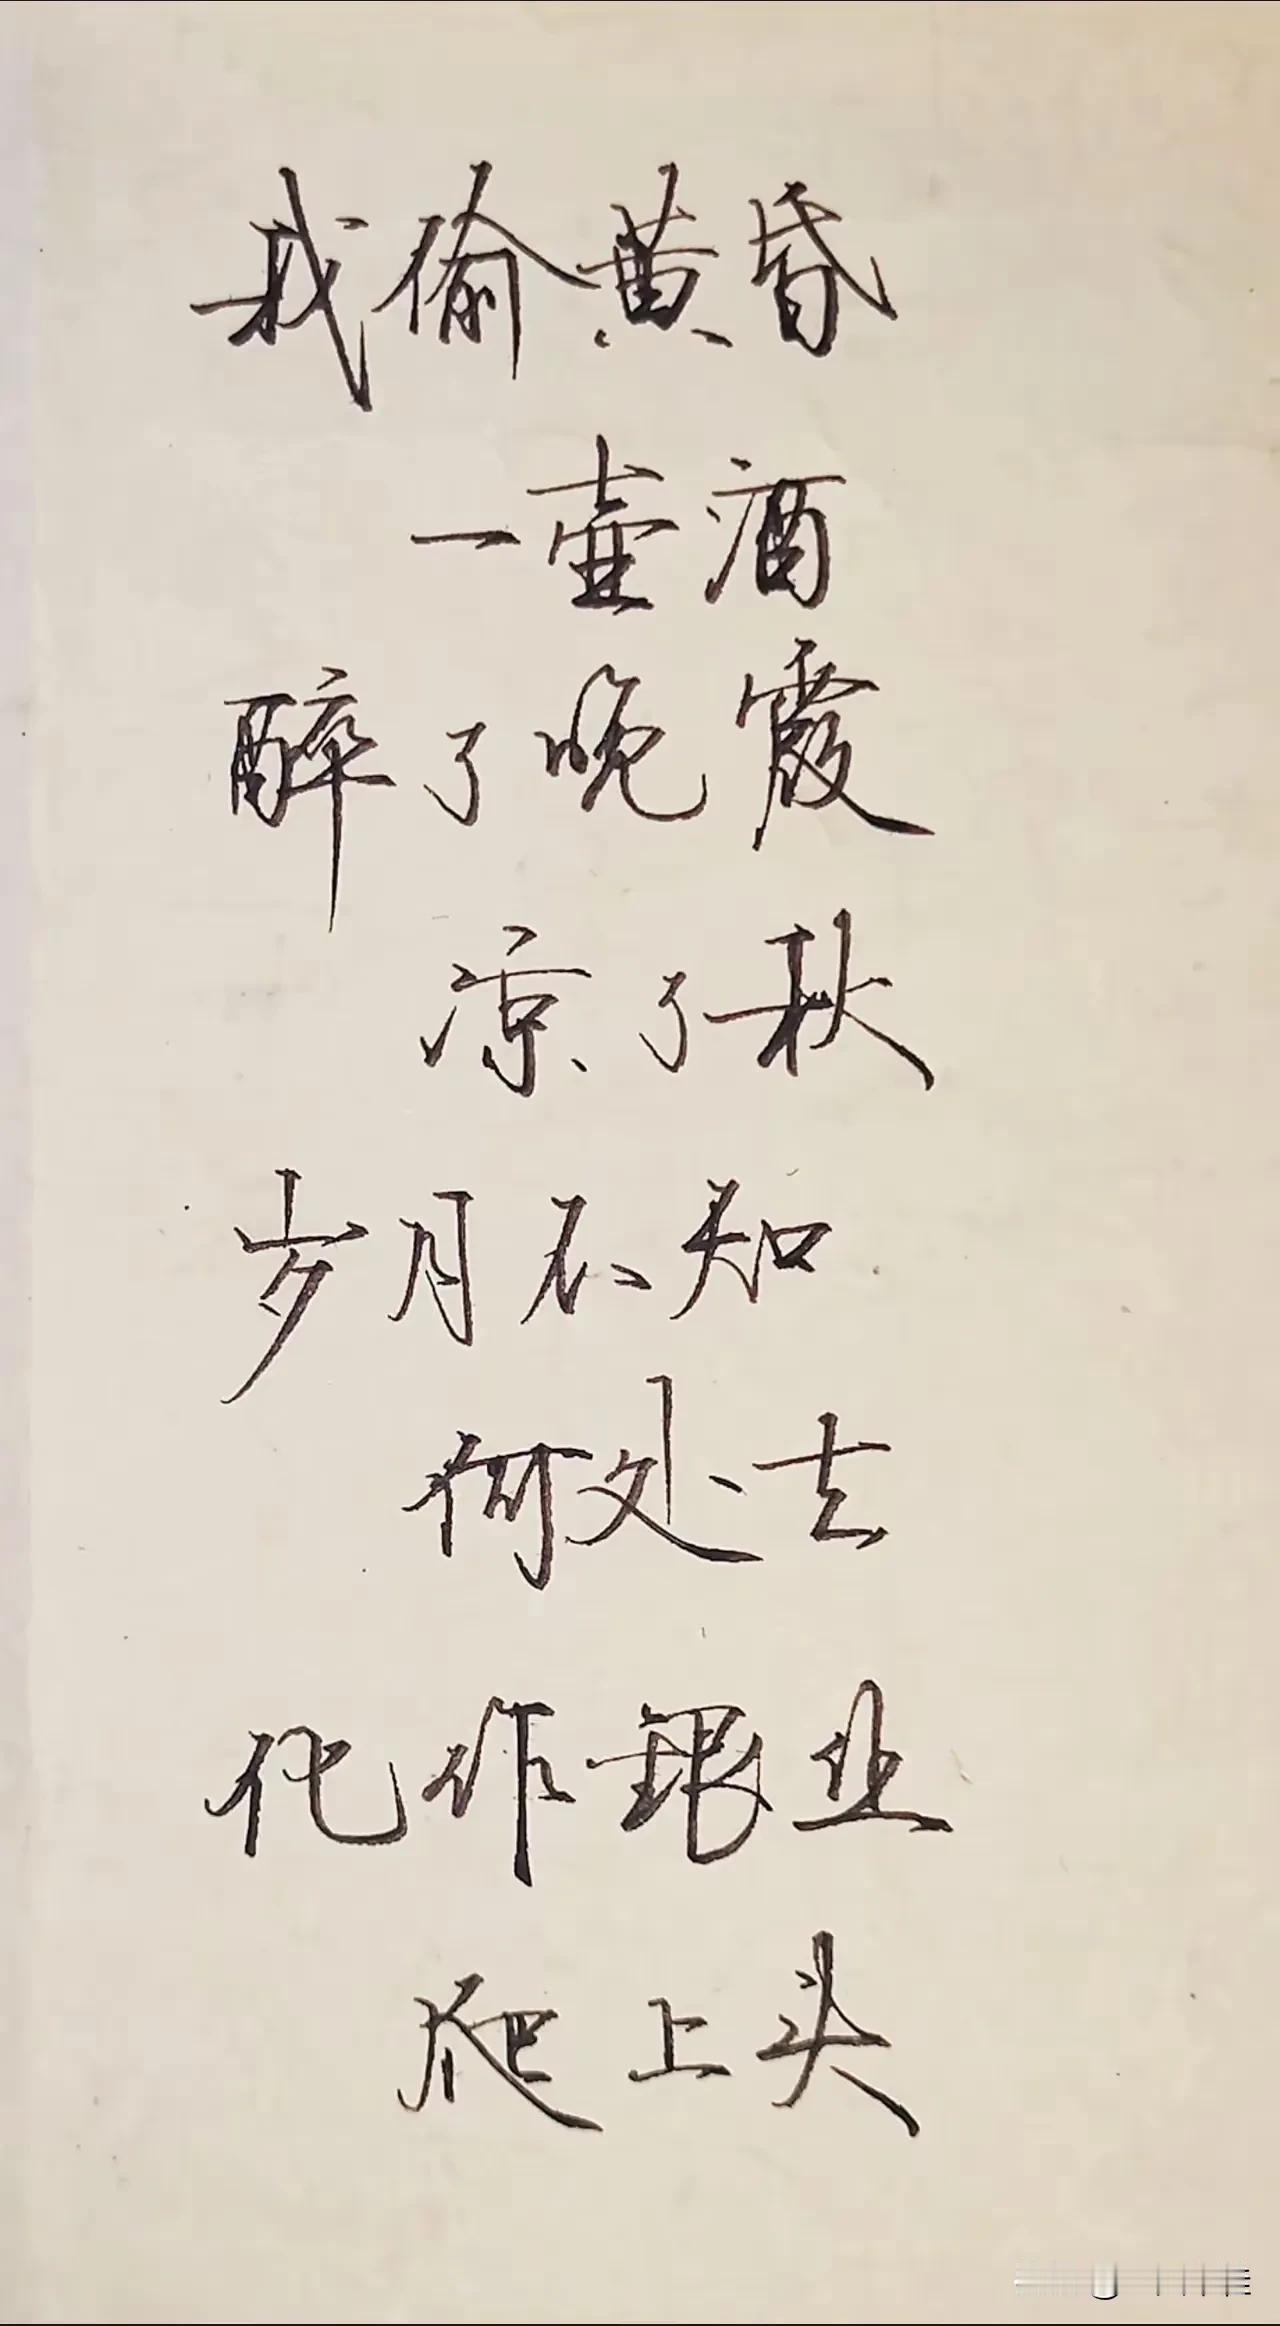 我偷黄昏
一壶酒
醉了晚霞
凉了秋
岁月不知
何处去
化作银丝
爬上头